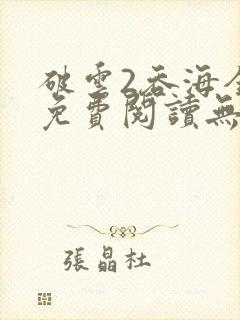 破雲2吞海全
免費閱讀無
張晶杜